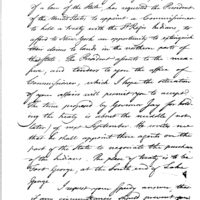 of a law of the State, has requested the President
of the United States to appoint a Commissioner
to hold a Treaty with the St Regis Indians to
afford to New York an opportunity to extinguish
their claims to lands in the northern parts of
that State. The President assents to the mea-
sure, and tenders to you the office of
Commissioner, which I hope the situation
of your affairs will permit you to accept.
the time proposed by Governor Jay for hold
ing the treaty is about the middle (or
later) of next September. He writes me
that he shall appoint three agents on the
part of the State to negociate the purchase
of the Indians. The place of treaty is to be
Fort George, at the South end of Lake
George.
I request your speedy answer, that
if any circumstances should prevent your